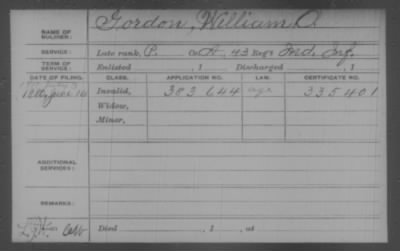 NAME OF SOLDIER: Gordon, William O.
SERVICE: Late rank, P. Co. A, 43 Reg't Ind. Inf.
TERM OF SERVICE: Enlisted , 1 Discharged , 1
DATE OF FILING. CLASS. APPLICATION NO. LAW. CERTIFICATE NO.
Invalid, 383644 age 335401
Widow,
Minor,
ADDITIONAL SERVICES:
REMARKS:
Died , 1 , at